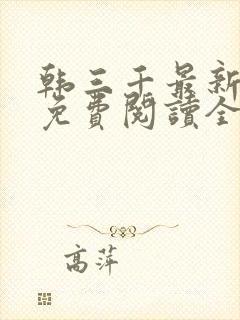 韩三千最新
免費閱讀全
高萍